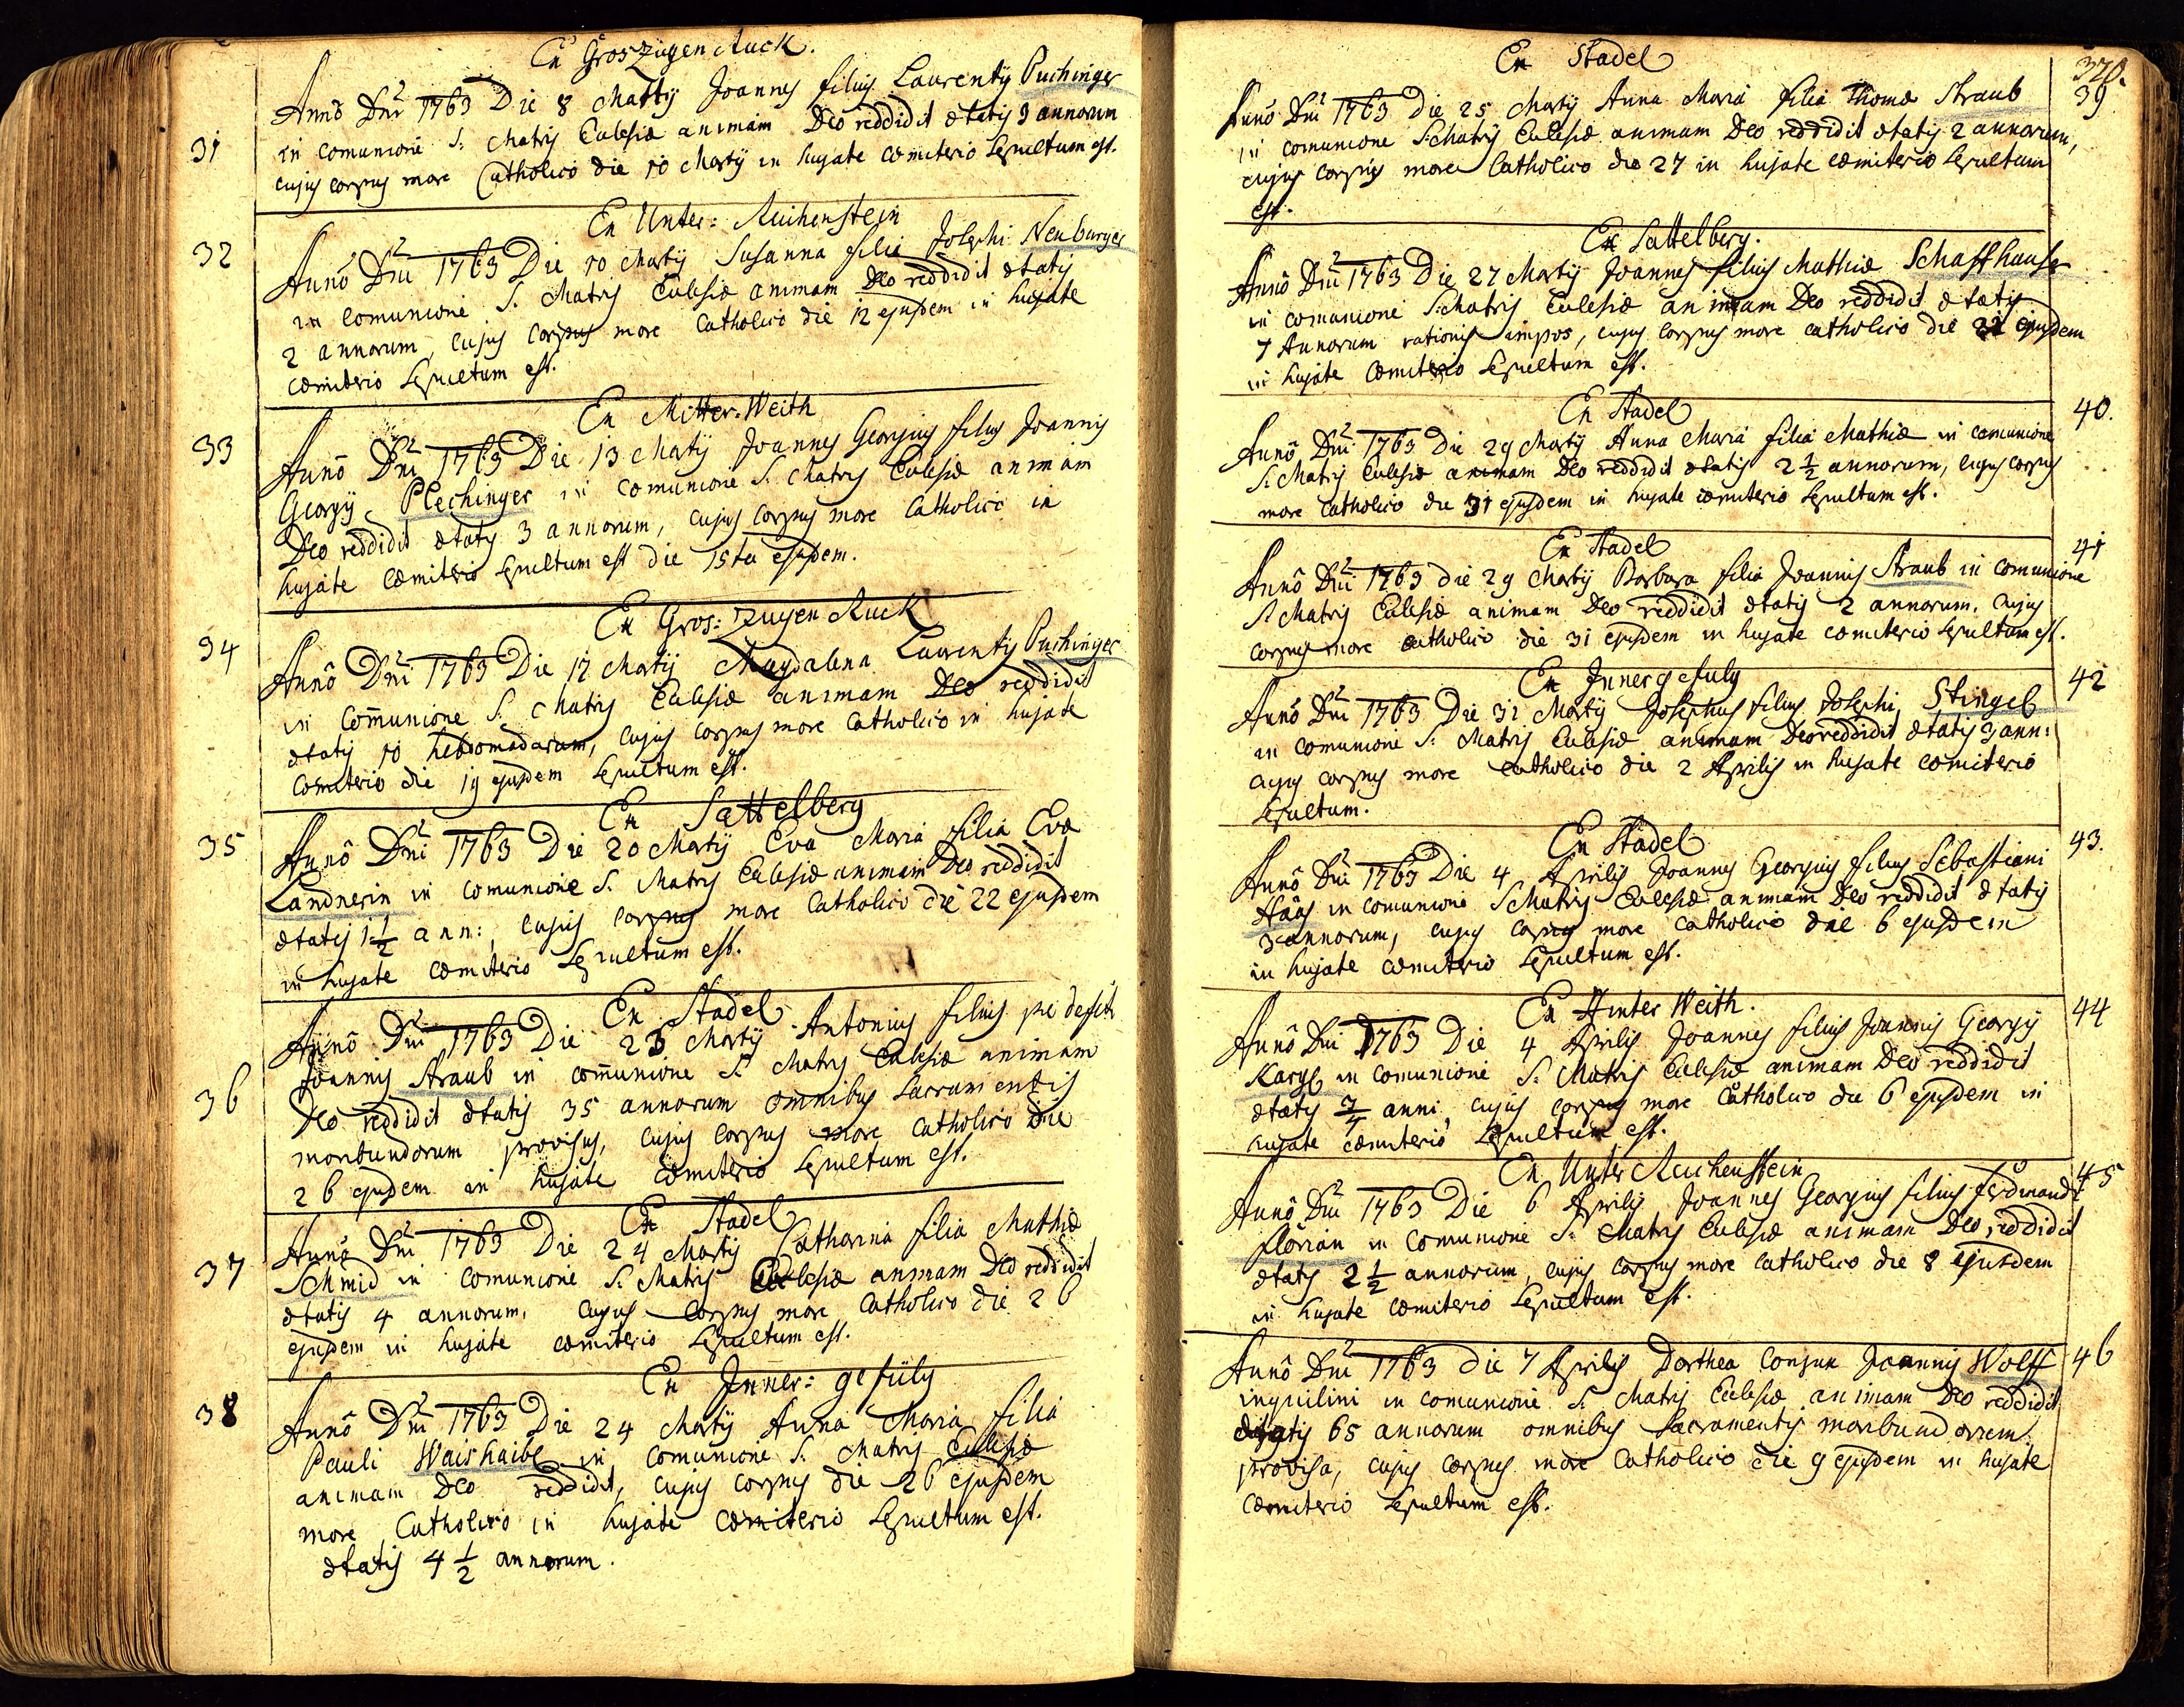 Ex Groszügen Ruck.
31
Anno Dni 1763 Die 8 Martij Joannes filius Laurentij Puchinger
in comunione S: Matris Ecclesiæ animam Deo reddidit ætatis 3 annorum
cujus corpus more Catholico die 10 Martij in hujate cœmiterio Sepultum est.
Ex Unter: Reichenstein
32
Anno Dni 1763 Die 10 Martij Susanna filia Josephi Neuburger
in comunione S. Matris Ecclesiæ animam Deo reddidit ætatis
2 annorum, cujus corpus more Catholico die 12 ejusdem in hujate
cœmiterio Sepultum est.
Ex Mitter-Weith
33
Anno Dni 1763 Die 13 Martij Joannes Georgius filius Joannis
Georgij Plechinger in comunione S. Matris Ecclesiæ animam
Deo reddidit ætatis 3 annorum, cujus corpus more Catholico in
hujate Cœmiterio Sepultum est die 15ta ejusdem.
Ex Gros: Zugen Ruck
34
Anno Dni 1763 Die 17 Martij Magdalena Laurentij Puchinger
in Comunione S. Matris Ecclesiæ animam Deo reddidit
ætatis 10 hebdomadarum, cujus corpus more Catholico in hujate
Cœmiterio die 19 ejusdem Sepultum est.
Ex Sattelberg
35
Anno Dni 1763 Die 20 Martij Eva Maria filia Evæ
Landnerin in comunione S. Matris Ecclesiæ animam Deo reddidit
ætatis 1½ ann:, cujus corpus more Catholico die 22 ejusdem
in hujate cœmiterio Sepultum est.
Ex Stadel
36
Anno Dni 1763 Die 23 Martij Antonius filius
Joannis Straub in comunione S. Matris Ecclesiæ animam
Deo reddidit ætatis 35 annorum omnibus Sacramentis
moribundorum provisus, cujus corpus more Catholico die
26 ejusdem in hujate cœmiterio Sepultum est.
Ex Stadel
37
Anno Dni 1763 Die 24 Martij Catharina filia Mathiæ
Schmid in comunione S. Matris Ecclesiæ animam Deo reddidit
ætatis 4 annorum, cujus corpus more Catholico die 26
ejusdem in hujate cœmiterio Sepultum est.
Ex Jnner: gefüly
38
Anno Dni 1763 Die 24 Martij Anna Maria filia
Pauli Waishaibl in comunione S. Matris Ecclesiæ
animam Deo reddidit, cujus corpus die 26 ejusdem
more Catholico in hujate cœmiterio Sepultum est.
ætatis 4½ annorum.
370.
Ex Stadel
39
Anno Dni 1763 Die 25 Martij Anna Maria filia Thomæ Straub
in comunione S. Matris Ecclesiæ animam Deo reddidit ætatis 2 annorum,
cujus corpus more Catholico die 27 in hujate cœmiterio Sepultum
est.
Ex Sattelberg.
Anno Dni 1763 Die 27 Martij Joannes filius Mathiæ Schaffhauser
in comunione S. Matris Ecclesiæ animam Deo reddidit ætatis
7 Annorum rationis impos, cujus corpus more catholico die ejusdem
in hujate Cœmiterio Sepultum est.
Ex Stadel
40.
Anno Dni 1763 Die 29 Martij Anna Maria filia Mathiæ in comunione
S. Matris Ecclesiæ animam Deo reddidit ætatis 2½ annorum, cujus corpus
more Catholico die 31 ejusdem in hujate cœmiterio Sepultum est.
Ex Stadel
41
Anno Dni 1763 die 29 Martij Barbara filia Joannis Straub in comunione
S. Matris Ecclesiæ animam Deo reddidit ætatis 2 annorum, cujus
corpus more catholico die 31 ejusdem in hujate cœmiterio Sepultum est.
Ex Jnnergefuly
42
Anno Dni 1763 Die 31 Martij Josephus filius Josephi Stingel
in comunione S. Matris Ecclesiæ animam Deo reddidit ætatis 3 ann:
cujus corpus more catholico die 2 Aprilis in hujate cœmiterio
Sepultum.
Ex Stadel
43.
Anno Dni 1763 Die 4 Aprilis Joannes Georgius filius Sebastiani
Haas in comunione S. Matris Ecclesiæ animam Deo reddidit ætatis
3 annorum, cujus corpus more catholico die 6 ejusdem
in hujate cœmiterio Sepultum est.
Ex Hinter Weith.
44
Anno Dni 1763 Die 4 Aprilis Joannes filius Joannis Georgij
Kargl in comunione S. Matris Ecclesiæ animam Deo reddidit
ætatis ¾ anni, cujus corpus more Catholico die 6 ejusdem in
hujate cœmiterio Sepultum est.
Ex Unter Reichenstein
45
Anno Dni 1763 Die 6 Aprilis Joannes Georgius filius Ferdinandi
Florian in comunione S. Matris Ecclesiæ animam Deo reddidit
ætatis 2½ annorum, cujus corpus more catholico die 8 ejusdem
in hujate cœmiterio Sepultum est.
46
Anno Dni 1763 die 7 Aprilis Dorthea Conjux Joannis Wolff
inquilini in comunione S. Matris Ecclesiæ animam Deo reddidit
ætatis 65 annorum omnibus Sacramentis moribundorum
provisa, cujus corpus more Catholico die 9 ejusdem in hujate
cœmiterio Sepultum est.